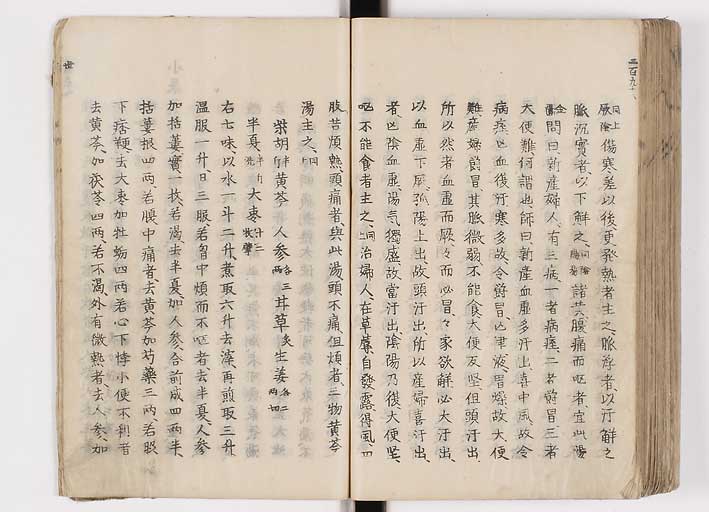 同上 厥陰 傷寒差以後更發熱者主之脈浮者以汗解之
脈沉實者以下解之 諸黄腹痛而嘔者宜此湯
問曰新産婦人有三病一者病痓二者病鬱冒三者
大便難何謂也師曰新産血虚多汗出喜中風故令
病痓亡血復汗寒多故令鬱冒亡津液胃燥故大便
難産婦鬱冒其脈微弱不能食大便反堅但頭汗出
所以然者血虚而厥々而必冒々家欲解必大汗出
以血虚下厥孤陽上出故頭汗出所以産婦喜汗出
者亡陰血虚陽氣獨盛故當汗出陰陽乃復大便堅
嘔不能食者主之 同 治婦人在草蓐自發露得風四
肢苦煩熱頭痛者與此湯頭不痛但煩者三物黄芩
湯主之 同
柴胡 半斤 黄芩 人参 各三兩 甘草 炙 生姜 各二兩 切
半夏 半升 洗 大棗 十二枚 擘
右七味以水一斗二升煮取六升去滓再煎取三升
温服一升日三服若胸中煩而不嘔者去半夏人参
加括蔞實一枚若渇去半夏加人参合前成四兩半
括蔞根四兩若腹中痛者去黄芩加芍藥三兩若脇
下痞鞕去大棗加牡蛎四兩若心下悸小便不利者
去黄芩加茯苓四兩若不渇外有微熱者去人参加